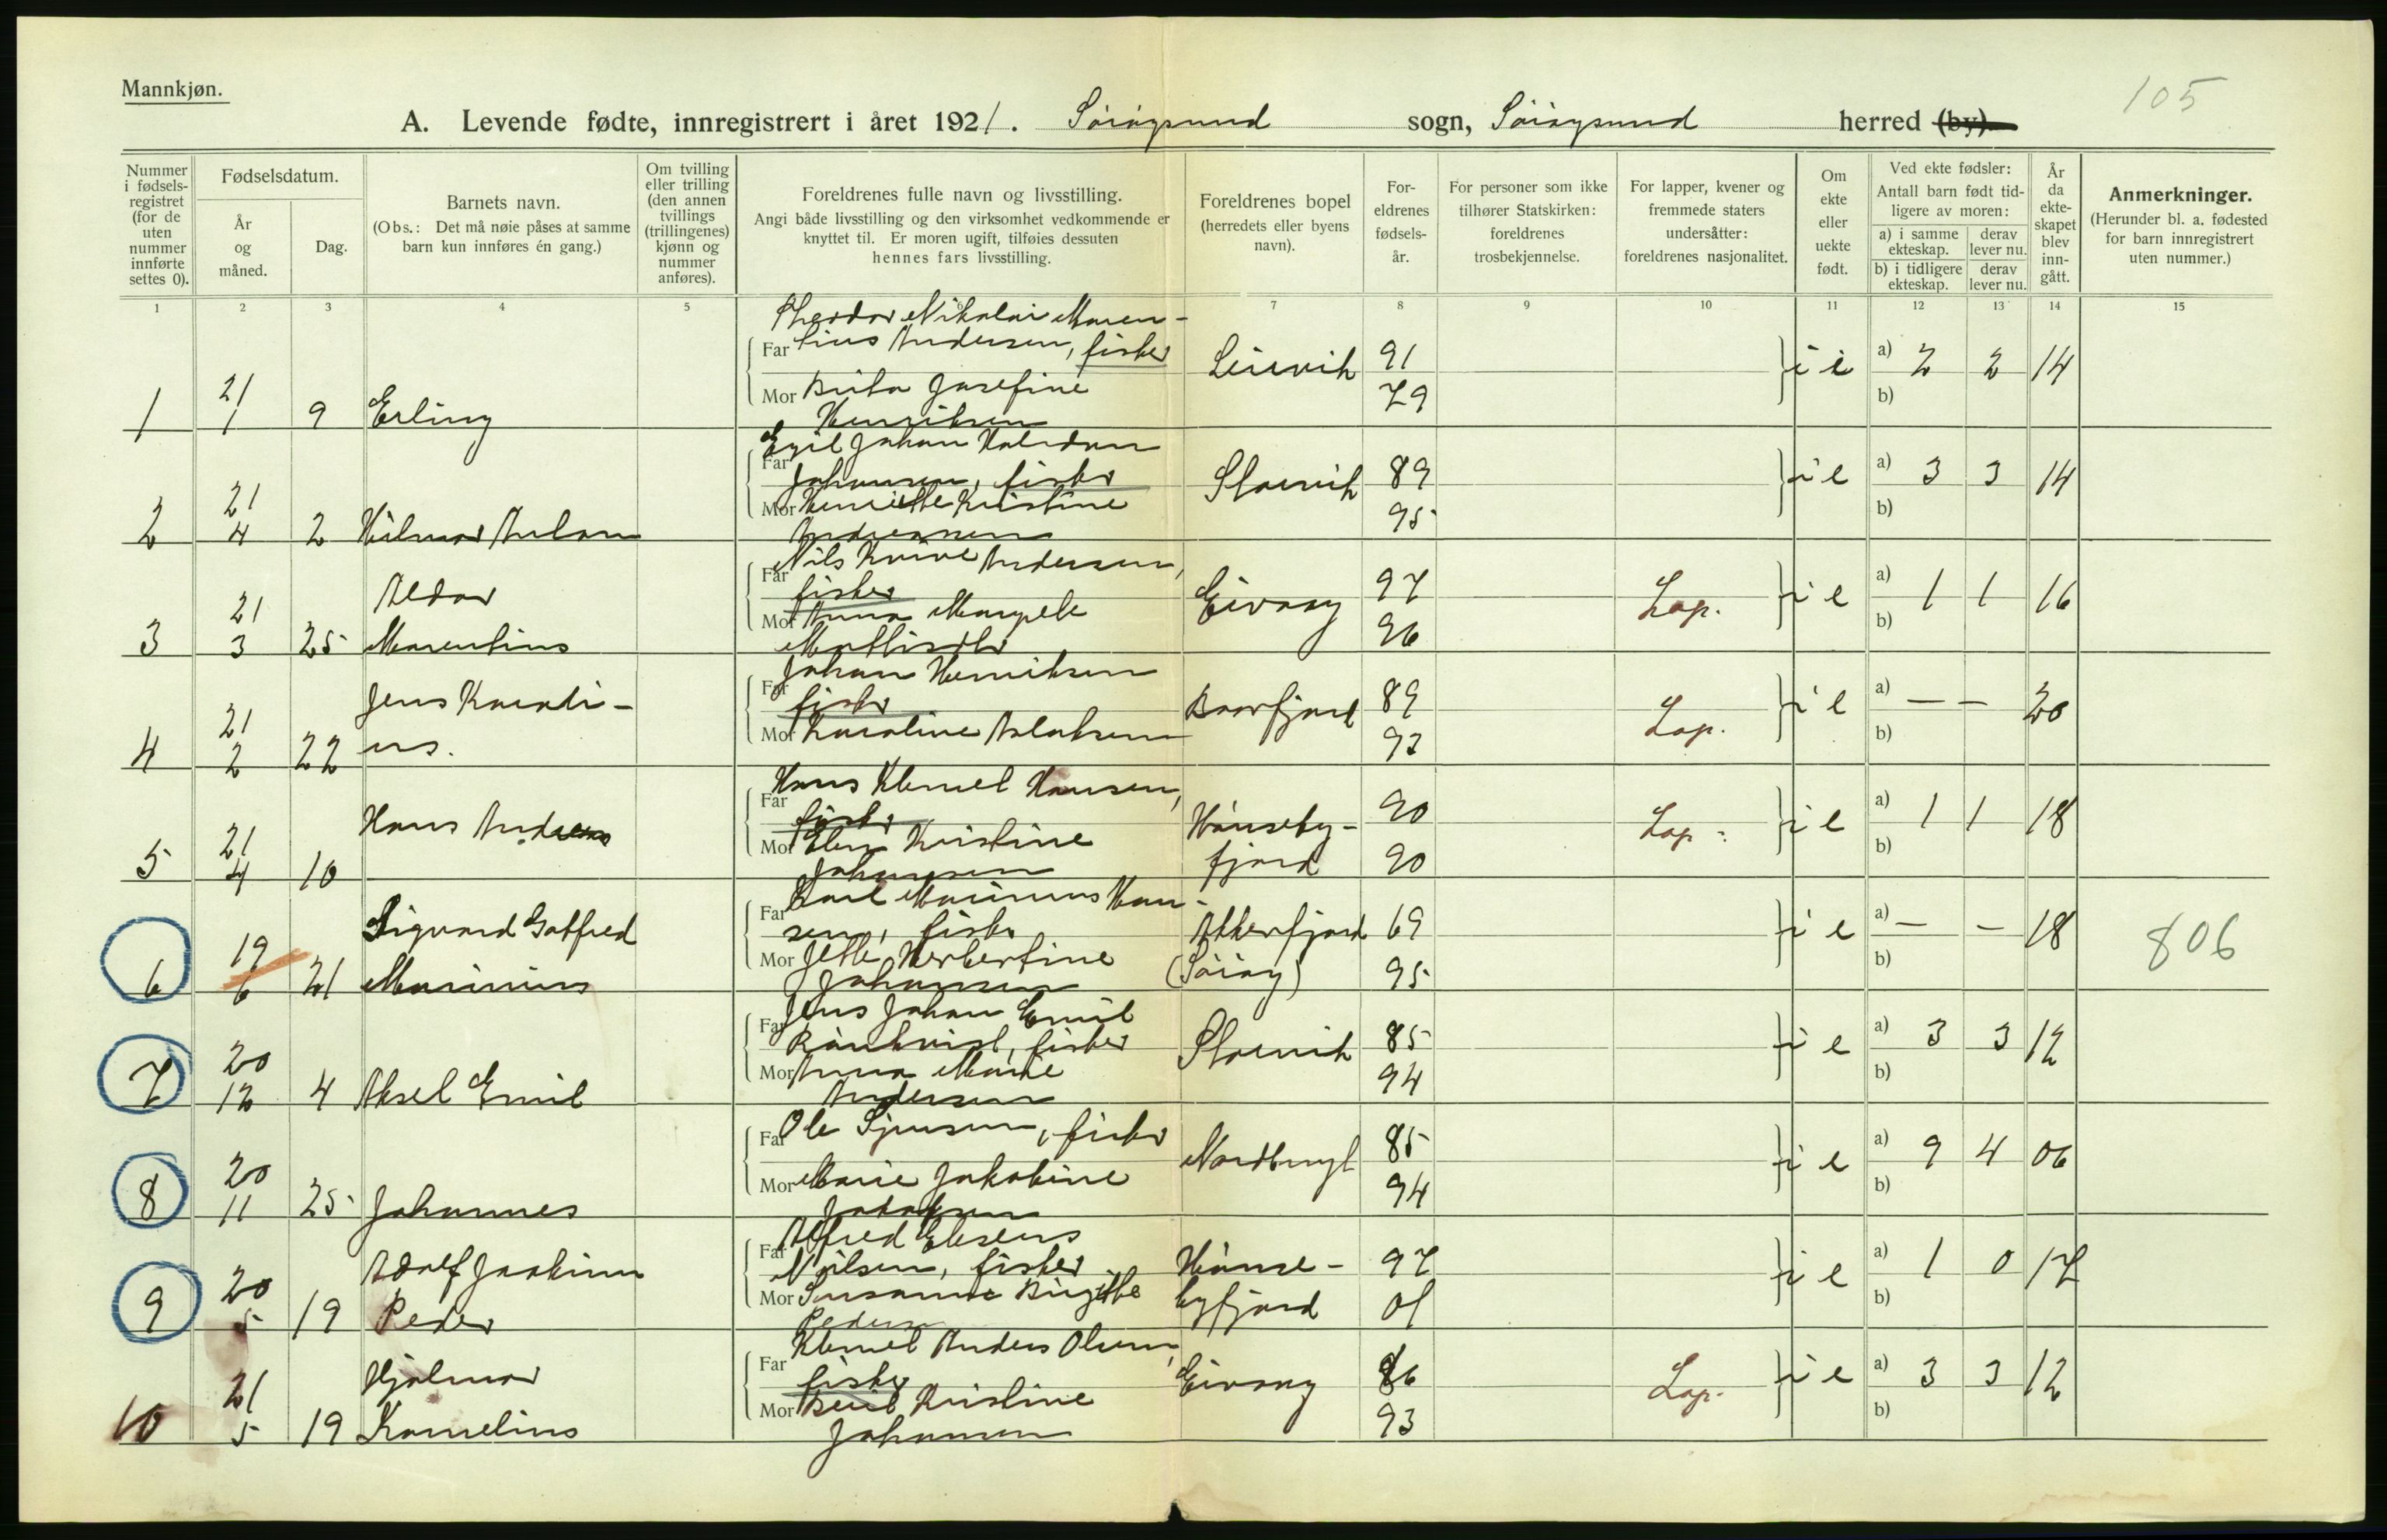 Mannkjøn.
105
A. Levende fødte, innregistrert i året 1921. Sørøysund sogn, Sørøysund herred (by).
Nummer i fødsels-registret (for de uten nummer innførte settes 0).
Fødselsdatum.
År og måned.
Dag.
Barnets navn.
(Obs.: Det må nøie påses at samme barn kun innføres én gang.)
Om tvilling eller trilling (den annen tvillings (trillingenes) kjønn og nummer anføres).
Foreldrenes fulle navn og livsstilling.
Angi både livsstilling og den virksomhet vedkommende er knyttet til. Er moren ugift, tilføies dessuten hennes fars livsstilling.
Foreldrenes bopel (herredets eller byens navn).
For-eldrenes fødsels-år.
For personer som ikke tilhører Statskirken: foreldrenes trosbekjennelse.
For lapper, kvener og fremmede staters undersåtter: foreldrenes nasjonalitet.
Om ekte eller uekte født.
Ved ekte fødsler:
Antall barn født tid-ligere av moren:
a) i samme ekteskap.
derav lever nu.
b) i tidligere ekteskap.
derav lever nu.
År da ekte-skapet blev inn-gått.
Anmerkninger.
(Herunder bl. a. fødested for barn innregistrert uten nummer.)
1 2 3 4 5 6 7 8 9 10 11 12 13 14 15
Theodor Nikolai Maren-
Far tius Andersen, fisker
Mor Berta Josefine
Henriksen
1 21 1 9 Erling
91 79 i e a) 2 2 14 b)
Egil Johan Halvdan
Far Johansen, fisker
Mor Henriette Kristine
Andreassen
2 21 4 2 Hilmar
89 95 i e a) 3 3 14 b)
Nils Andersen,
Far fisker
Mor Anna
3 21 3 25 Aldor
Marentius
97 96 Lap. i e a) 1 1 16 b)
Johan Henriksen
Far fisker
Mor Karoline Aslaksen
4 21 2 22 Jens
us.
89 93 Lap. i e a) — — 20 b)
Hans Klemet Hansen,
Far fisker
Mor Elen Kristine
Johansen
5 21 4 10 Hans Andreas
Hønseby-
fjord
90 90 Lap. i e a) 1 1 18 b)
Karl Marinius Han-
Far sen, fisker
Mor Jette Herbertine
Johansen
6 19 6 21 Sigvard Gotfred
Marinius
Akkerfjord
(Sørøy)
69 95 i e a) — — 18 b) 806
Jens Johan Emil
Far Rönkvist, fisker
Mor Anna Marie
Andersen
7 20 12 4 Aksel Emil
85 94 i e a) 3 3 12 b)
Far Ole, fisker
Mor Marie Jakobine
8 20 11 25 Johannes
85 94 i e a) 9 4 06 b)
Alfred
Far Nilsen, fisker
Mor Susanne Birgitte
Pedersen
9 20 5 19 Adolf Joakim
Peder
Hønse-
byfjord
97 01 i e a) 1 0 17 b)
Klemet Anders Olsen,
Far fisker
Mor Berit Kristine
Johansen
10 21 5 19 Hjalmar
Kornelius
86 93 Lap. i e a) 3 3 12 b)